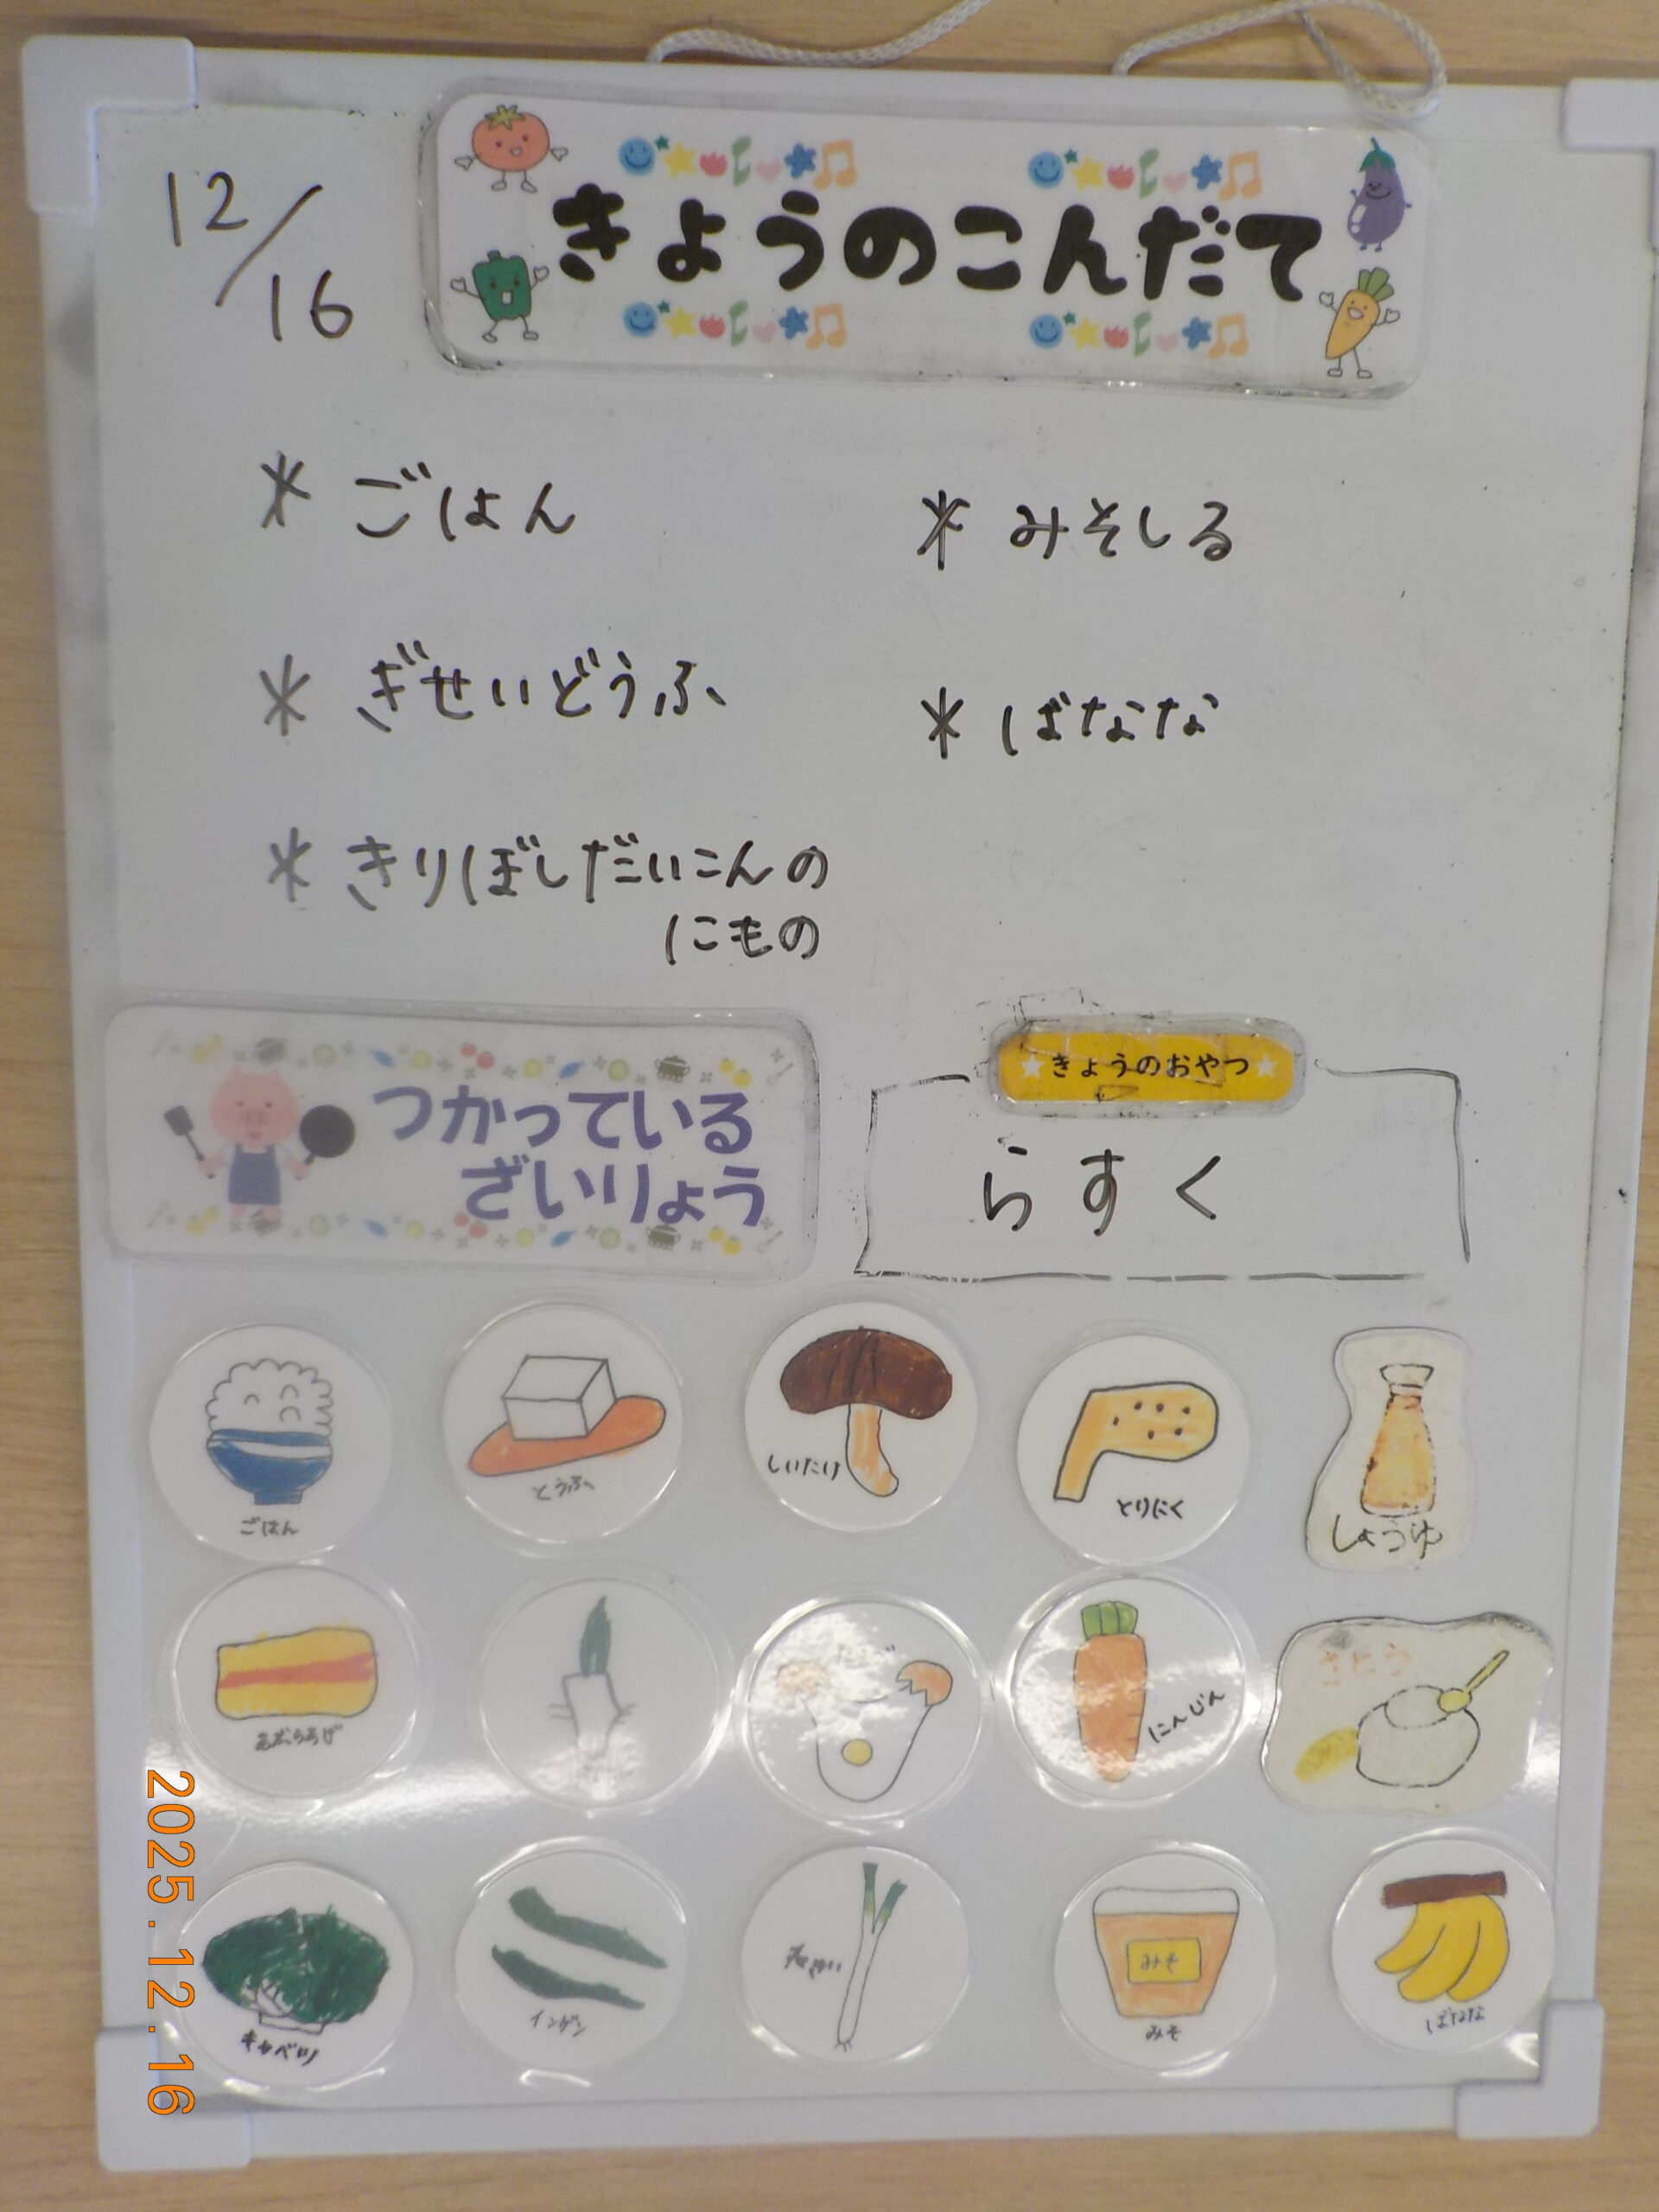 12/16
きょうのこんだて
* ごはん
* みそしる
* ぎせいどうふ
* ばなな
* きりぼしだいこんの
にもの
つかっている
ざいりょう
★きょうのおやつ★
らすく
ごはん
とうふ
しいたけ
とりにく
しょうゆ
あぶらあげ
にんじん
さとう
キャベツ
インゲン
みそ
みそ
ばなな
2025.12.16